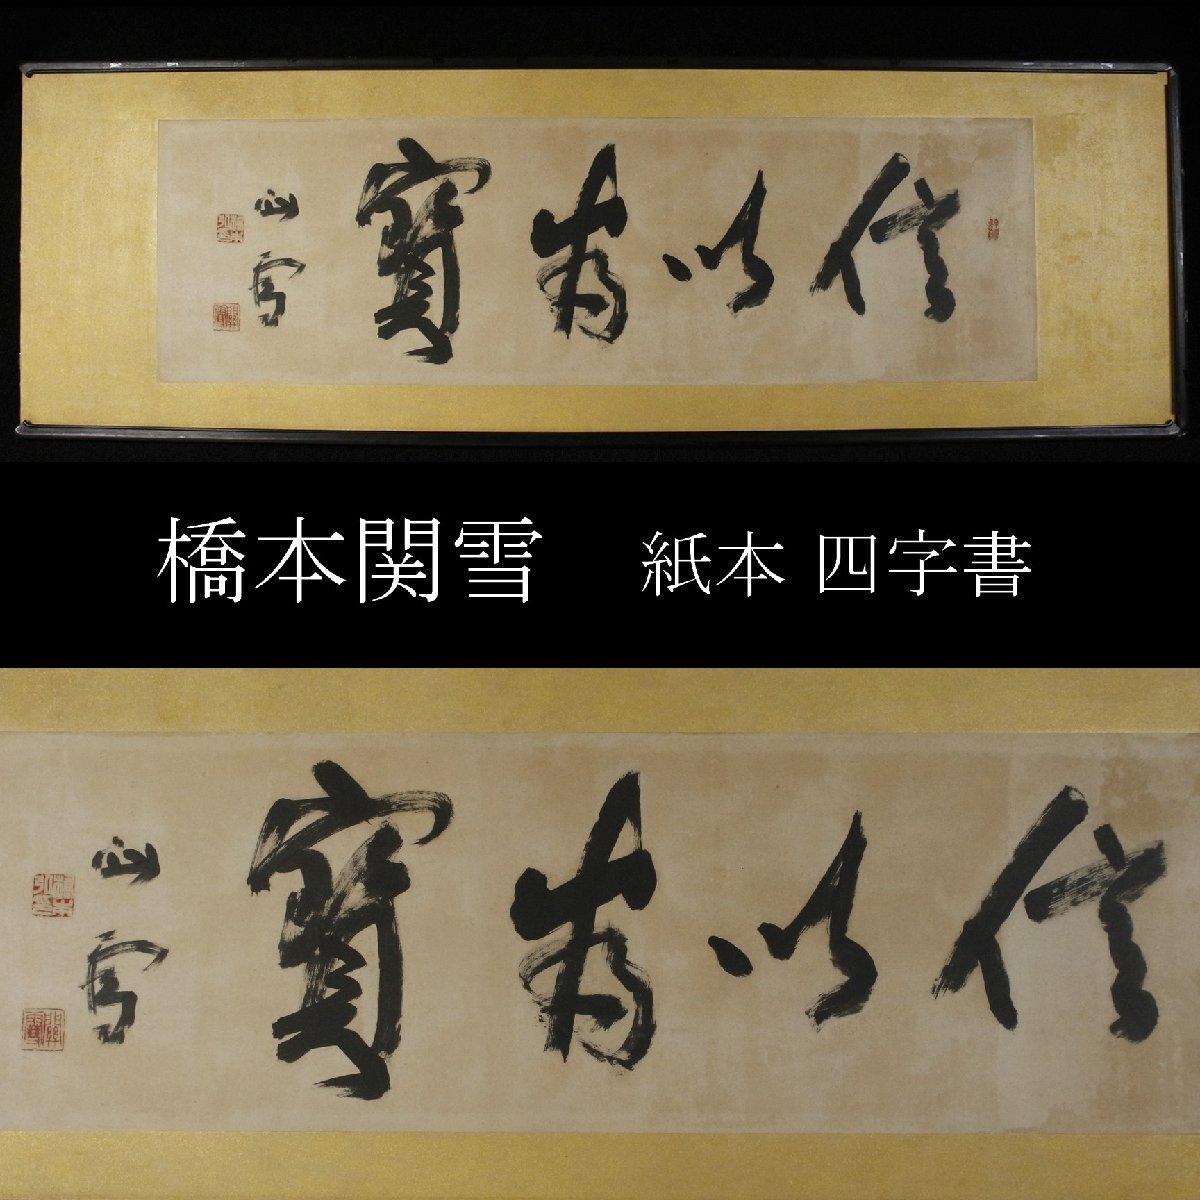 信以為寶
関雪
橋本関雪 紙本 四字書
信以為寶
関雪